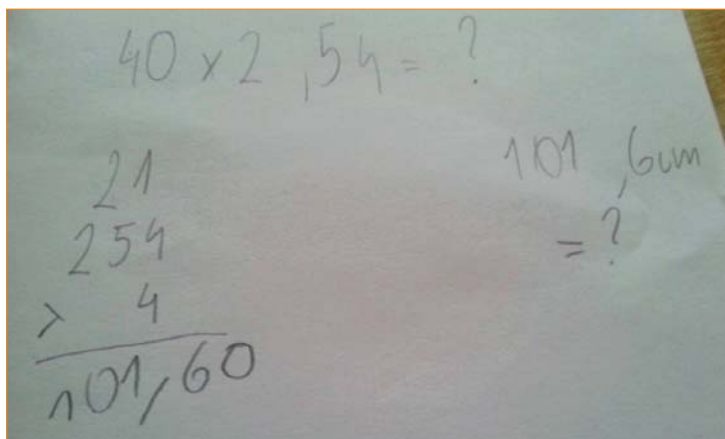 40 x 2,54 = ?
21
254
x 4
101,60
101,6cm
= ?